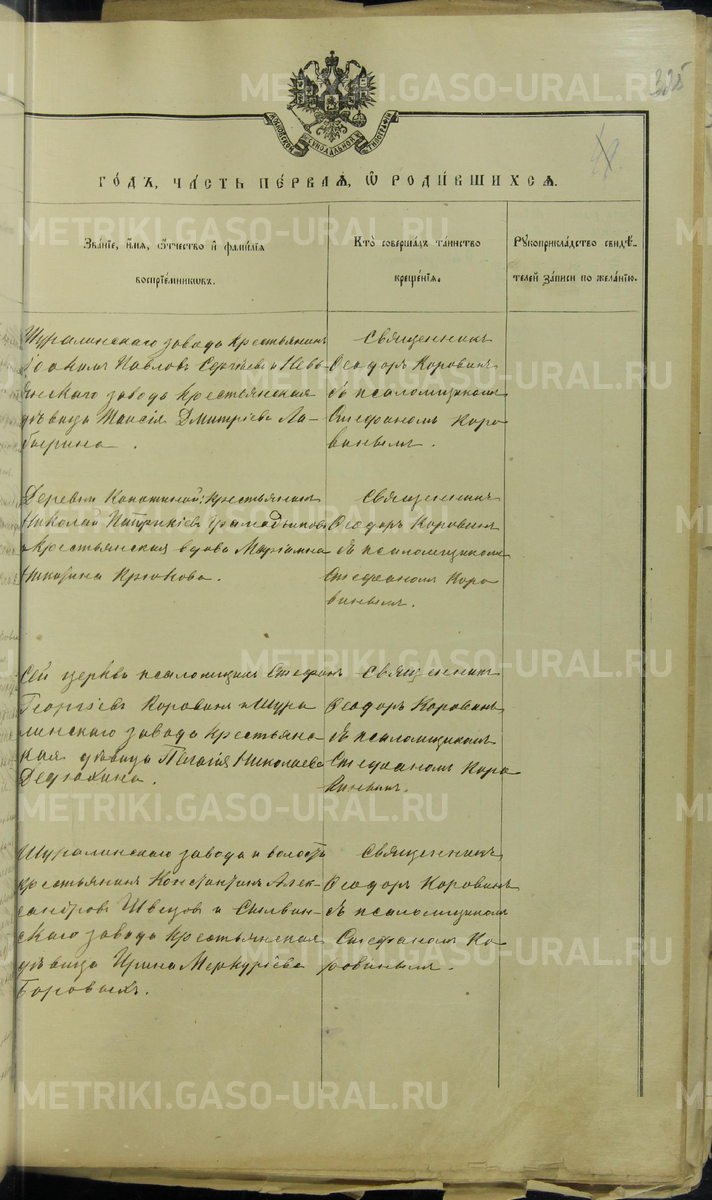 METRIKI.GASO-URAL.RU
335
МОСКОВСКОЙ СѴНОДАЛЬНОЙ ТИПОГРАФІИ
ГО́ДЪ, ЧА́СТЬ ПЕ́РВАЯ, Ѡ҆ РОДИ́ВШИХСЯ.
Зва́ніе, и҆́мя, ѻ҆́тчество и҆ фами́лія
воспріе́мниковъ.
Кто̀ соверша́лъ та́инство
креще́нія.
Рꙋкоприкла́дство свидѣ́-
телей за́писи по жела́нію.
Шуралинскаго завода крестьянинъ
Іоакимъ Павловъ Сергѣевъ и Невь
янскаго завода крестьянская
дѣвица Таисія Дмитріева Ла-
Священникъ
Ѳеодоръ Коровинъ
съ псаломщикомъ
Стефаномъ Коро
винымъ.
Деревни крестьянинъ
Николай Патрикіевъ
и крестьянская вдова
Крюкова.
Священникъ
Ѳеодоръ Коровинъ
съ псаломщикомъ
Стефаномъ Коро
винымъ.
Сей церкви псаломщикъ Стефанъ
Георгіевъ Коровинъ и Шура
линскаго завода крестьянс
кая дѣвица Пелагія Николаева
Священникъ
Ѳеодоръ Коровинъ
съ псаломщикомъ
Стефаномъ Коро
винымъ.
Шуралинскаго завода и волости
крестьянинъ Константинъ Алек-
сандровъ Швецовъ и Сылвин-
скаго завода крестьянская
дѣвица Ирина Меркуріева
Боровыхъ.
Священникъ
Ѳеодоръ Коровинъ
съ псаломщикомъ
Стефаномъ Ко
ровинымъ.